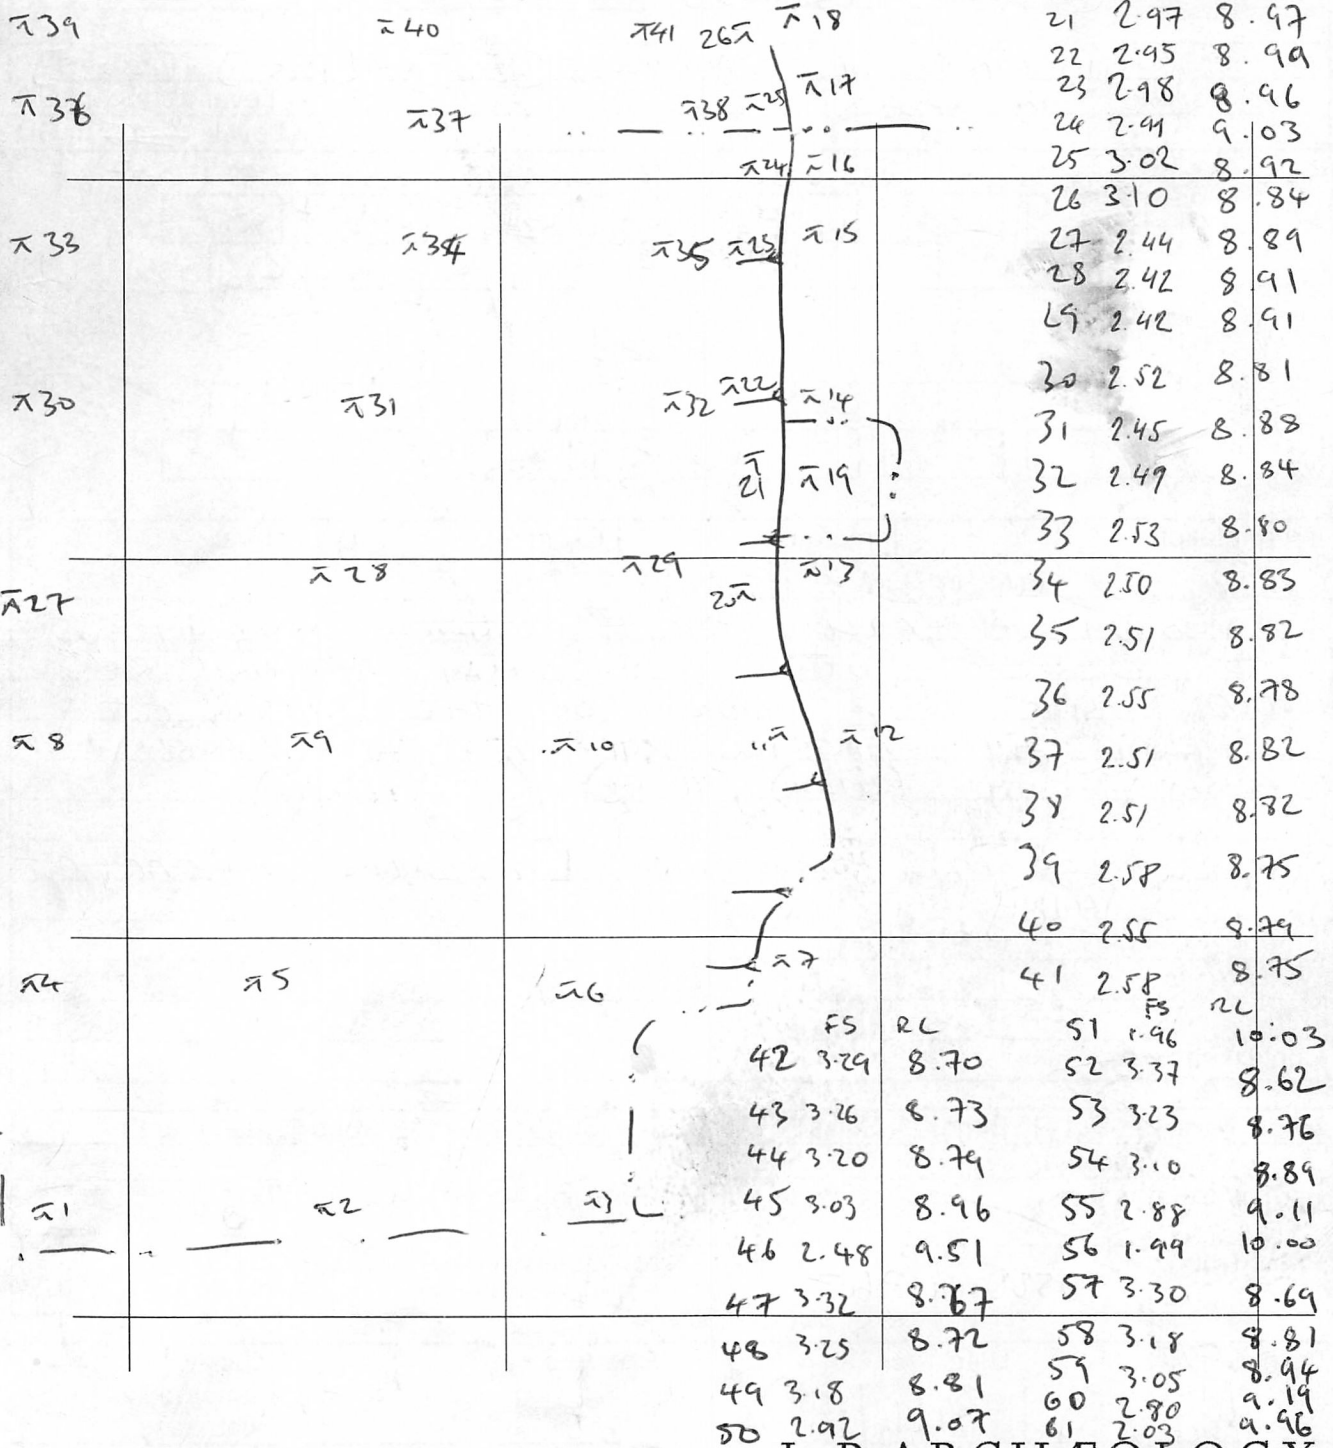 ⊼39 ⊼40 ⊼41 26⊼ ⊼18
⊼36 ⊼37 ⊼38 ⊼25 ⊼17
⊼24 ⊼16
⊼33 ⊼34 ⊼35 ⊼23 ⊼15
⊼30 ⊼31 ⊼32 ⊼22 ⊼14
⊼21 ⊼19
⊼27 ⊼28 ⊼29 20⊼ ⊼13
⊼8 ⊼9 ⊼10 11⊼ ⊼12
⊼4 ⊼5 ⊼6 ⊼7
⊼1 ⊼2 ⊼3
21 2.97 8.97
22 2.95 8.99
23 2.98 8.96
24 2.91 9.03
25 3.02 8.92
26 3.10 8.84
27 2.44 8.89
28 2.42 8.91
29 2.42 8.91
30 2.52 8.81
31 2.45 8.88
32 2.49 8.84
33 2.53 8.80
34 2.50 8.83
35 2.51 8.82
36 2.55 8.78
37 2.51 8.82
38 2.51 8.82
39 2.58 8.75
40 2.55 8.79
41 2.58 8.75
FS RL
42 3.29 8.70
43 3.26 8.73
44 3.20 8.79
45 3.03 8.96
46 2.48 9.51
47 3.32 8.67
48 3.25 8.72
49 3.18 8.81
50 2.92 9.07
FS RL
51 1.96 10.03
52 3.37 8.62
53 3.23 8.76
54 3.10 8.89
55 2.88 9.11
56 1.99 10.00
57 3.30 8.69
58 3.18 8.81
59 3.05 8.94
60 2.80 9.19
61 2.03 9.96